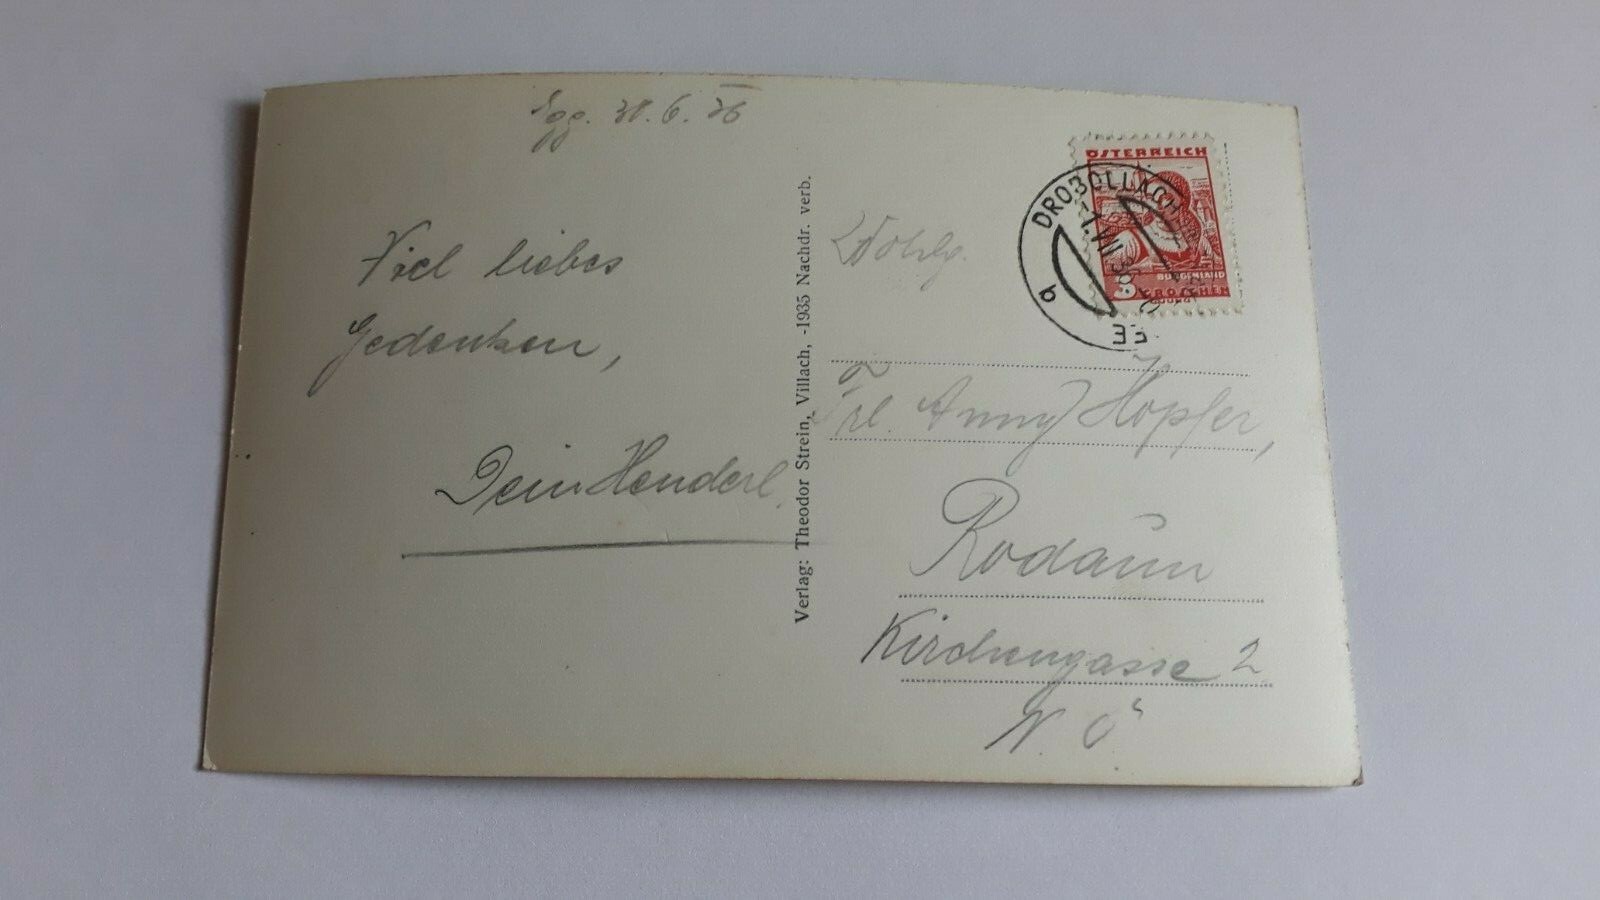 Egg. 30.6.36
Viel liebes
Gedenken,
Dein Henderl.
Verlag: Theodor Strein, Villach, -1935 Nachdr. verb.
ÖSTERREICH
BURGENLAND
3 GROSCHEN
DROBOLLACH
-1.VII.36
a
Wohlg.
Frl. Anny Hopfer,
Rodaun
Kirchengasse 2
N. Ö